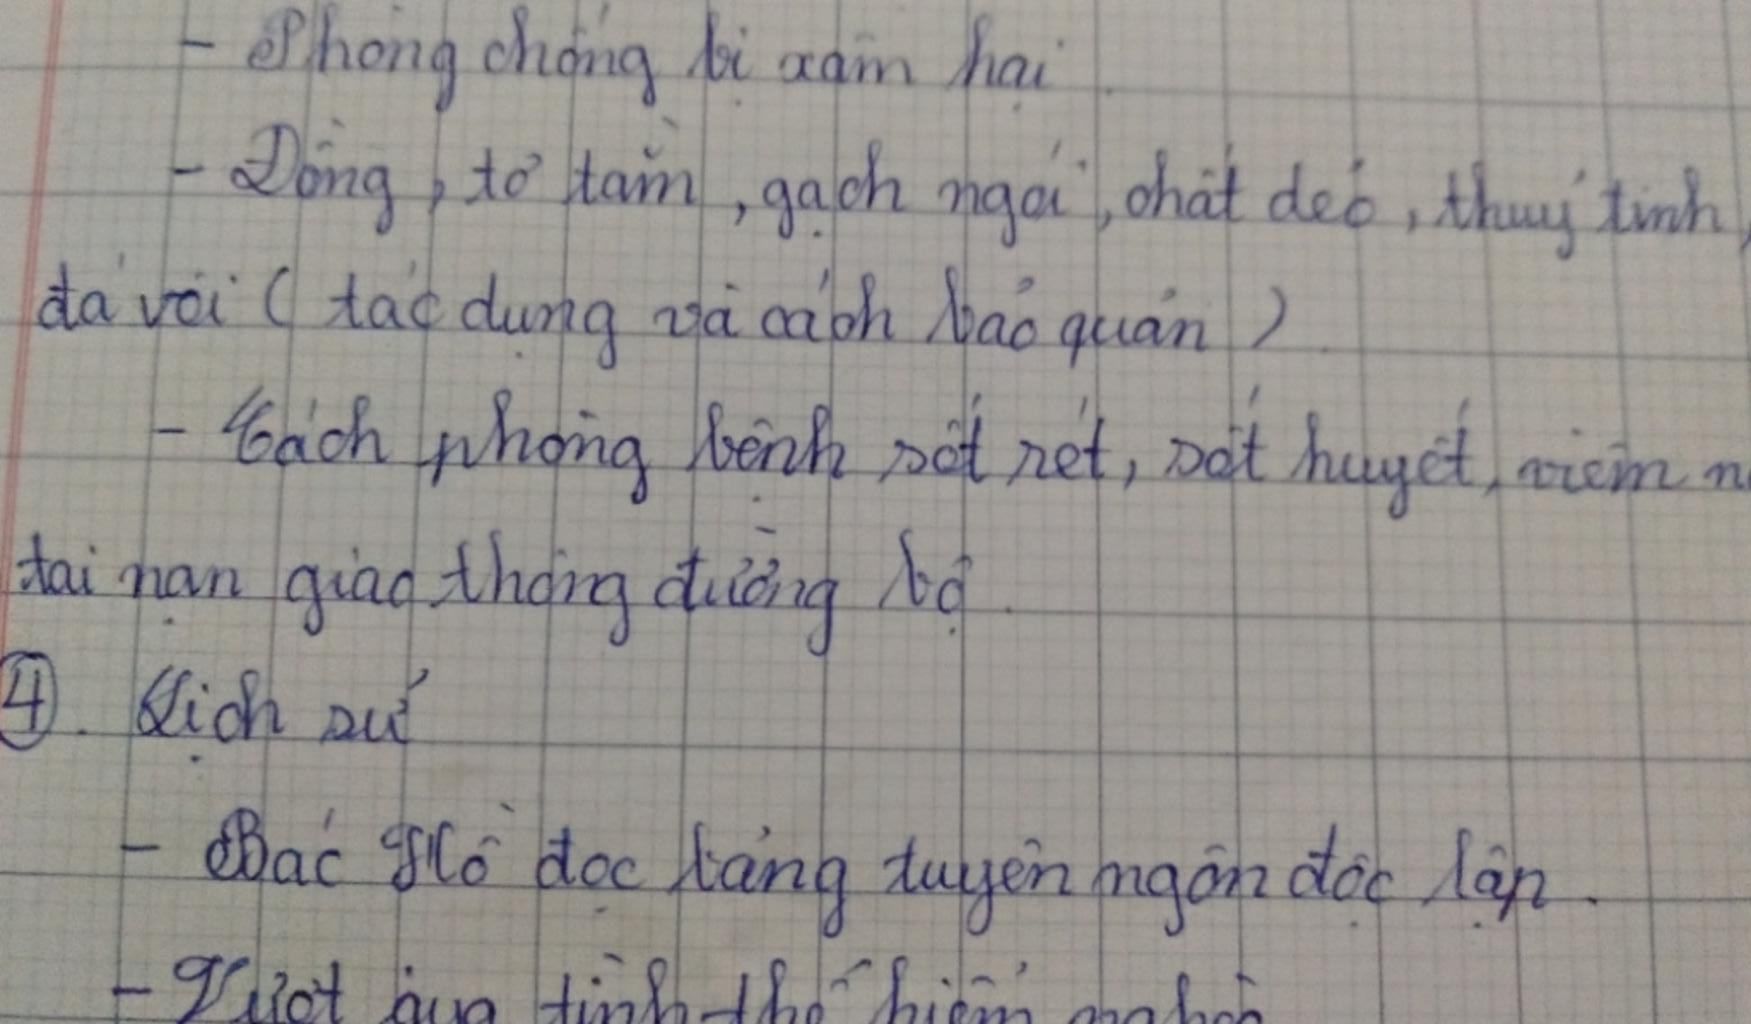 - Phòng chống bị xâm hại.
- Đồng, tơ tằm, gạch ngói, chất dẻo, thuỷ tinh,
đá vôi ( tác dụng và cách bảo quản ).
- Cách phòng bệnh sốt rét, sốt huyết, viêm
tai nạn giao thông đường bộ.
④. Lịch sử
- Bác Hồ đọc bảng tuyên ngôn độc lập.
- Vượt qua tình thế hiểm nghèo